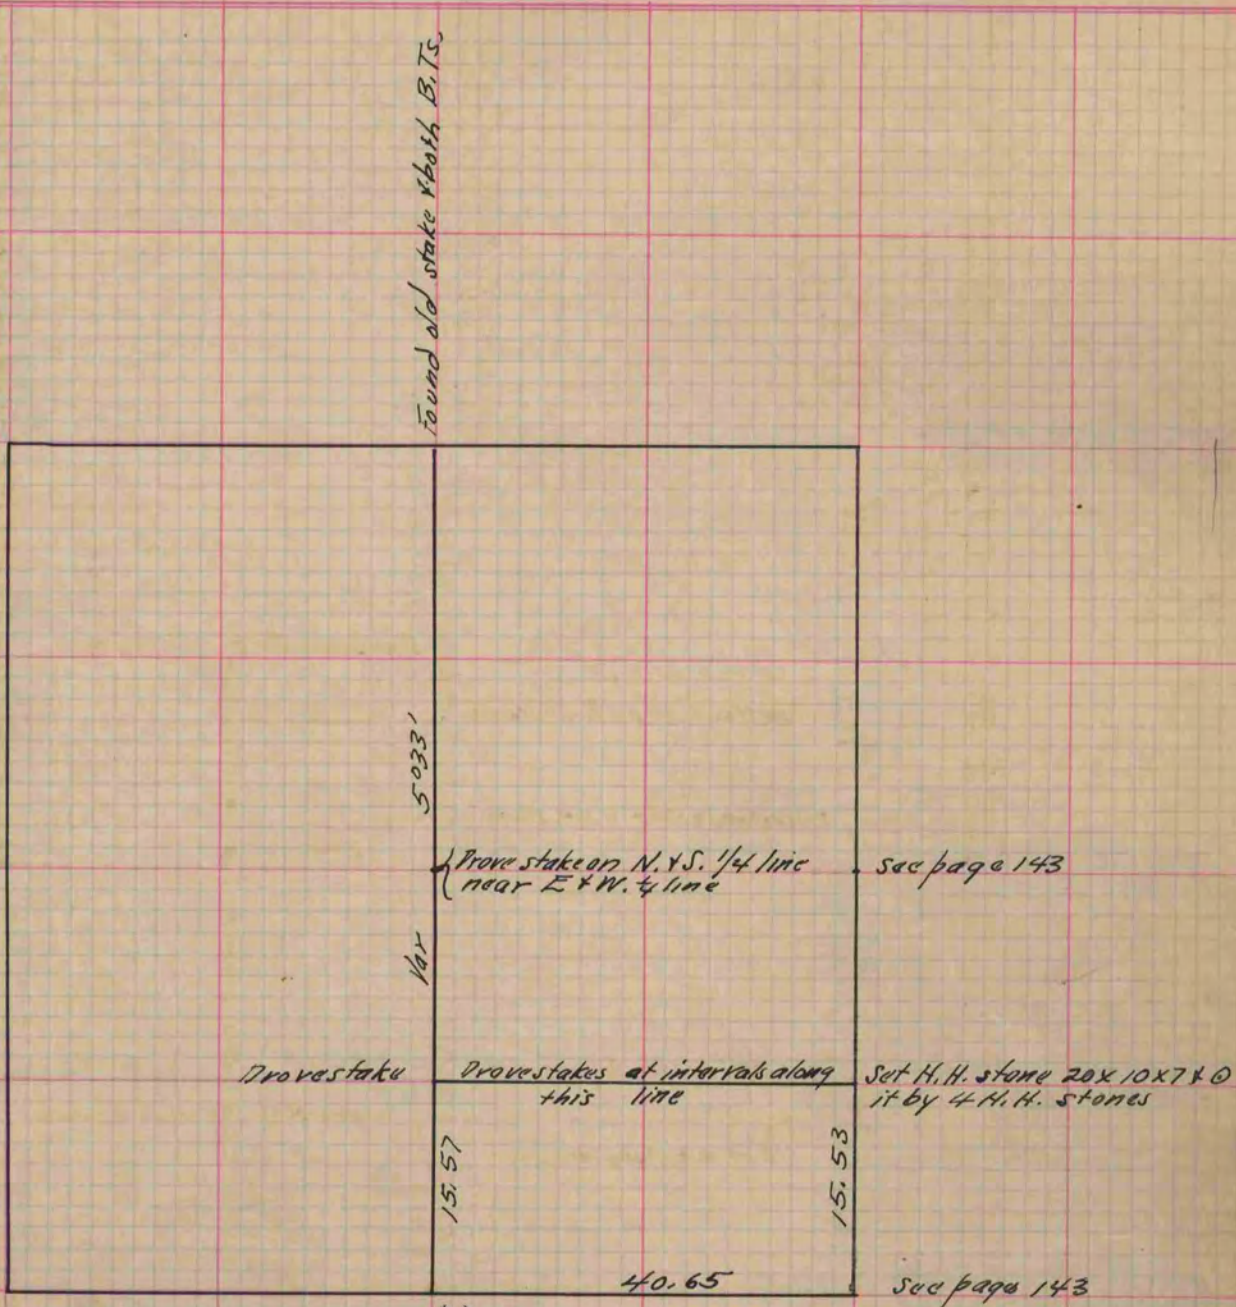 Found old stake & both B.Ts.
Var 5°33'
Drove stake on N. & S. 1/4 line
near E & W. 1/4 line
see page 143
Drove stake
Drove stakes at intervals along
this line
Set H.H. stone 20 x 10 x 7 & ⊙
it by 4 H.H. stones
15.57
15.53
40.65
see page 143